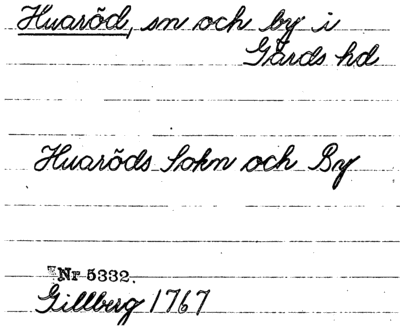 Huaröd, sn och by i
Gärds hd
Huaröds Sokn och By
Nr 5332.
Gillberg 1767